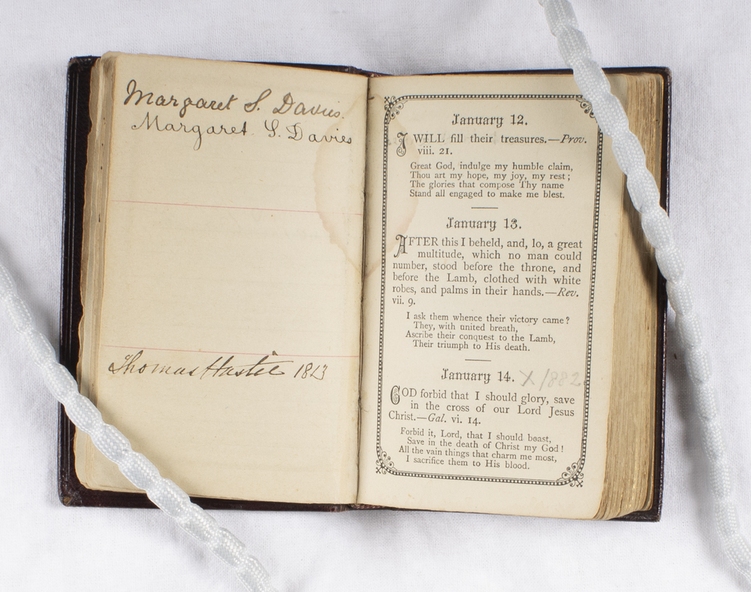 Margaret S. Davies.
Margaret. S. Davies
Thomas Hastie 1813
January 12.
I WILL fill their treasures.—Prov.
viii. 21.
Great God, indulge my humble claim,
Thou art my hope, my joy, my rest;
The glories that compose Thy name
Stand all engaged to make me blest.
January 13.
AFTER this I beheld, and, lo, a great
multitude, which no man could
number, stood before the throne, and
before the Lamb, clothed with white
robes, and palms in their hands.—Rev.
vii. 9.
I ask them whence their victory came?
They, with united breath,
Ascribe their conquest to the Lamb,
Their triumph to His death.
January 14. X/882
GOD forbid that I should glory, save
in the cross of our Lord Jesus
Christ.—Gal. vi. 14.
Forbid it, Lord, that I should boast,
Save in the death of Christ my God!
All the vain things that charm me most,
I sacrifice them to His blood.